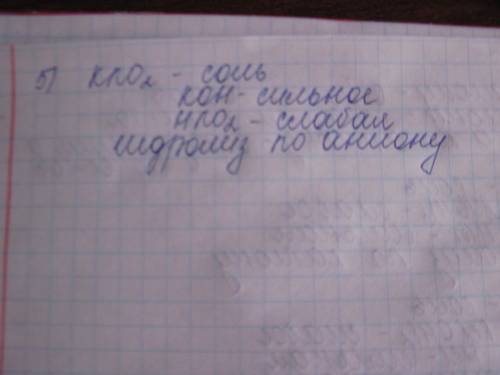 5) KNO₂ - соль
KOH - сильное
HNO₂ - слабая
гидролиз по аниону